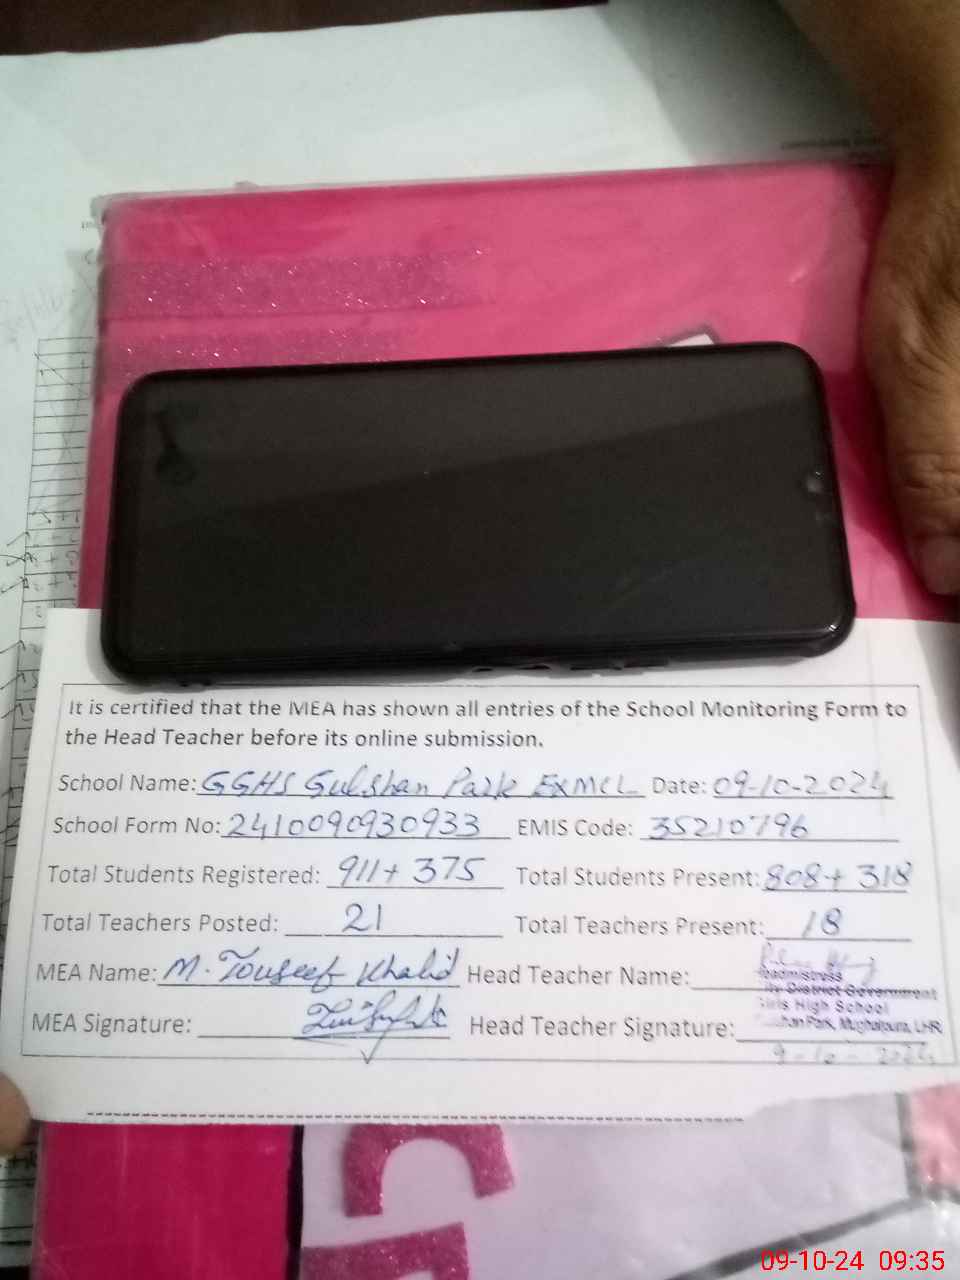 It is certified that the MEA has shown all entries of the School Monitoring Form to
the Head Teacher before its online submission.
School Name: GGHS Gulshan Park ExMCL Date: 09-10-2024
School Form No: 2410090930933 EMIS Code: 35210796
Total Students Registered: 911+ 375 Total Students Present: 808+ 318
Total Teachers Posted: 21 Total Teachers Present: 18
MEA Name: M. Touseef Khalid Head Teacher Name:
Headmistress
City District Government
Girls High School
MEA Signature: Head Teacher Signature:
Park, Mughalpura, LHR
9-10-2024
09-10-24 09:35